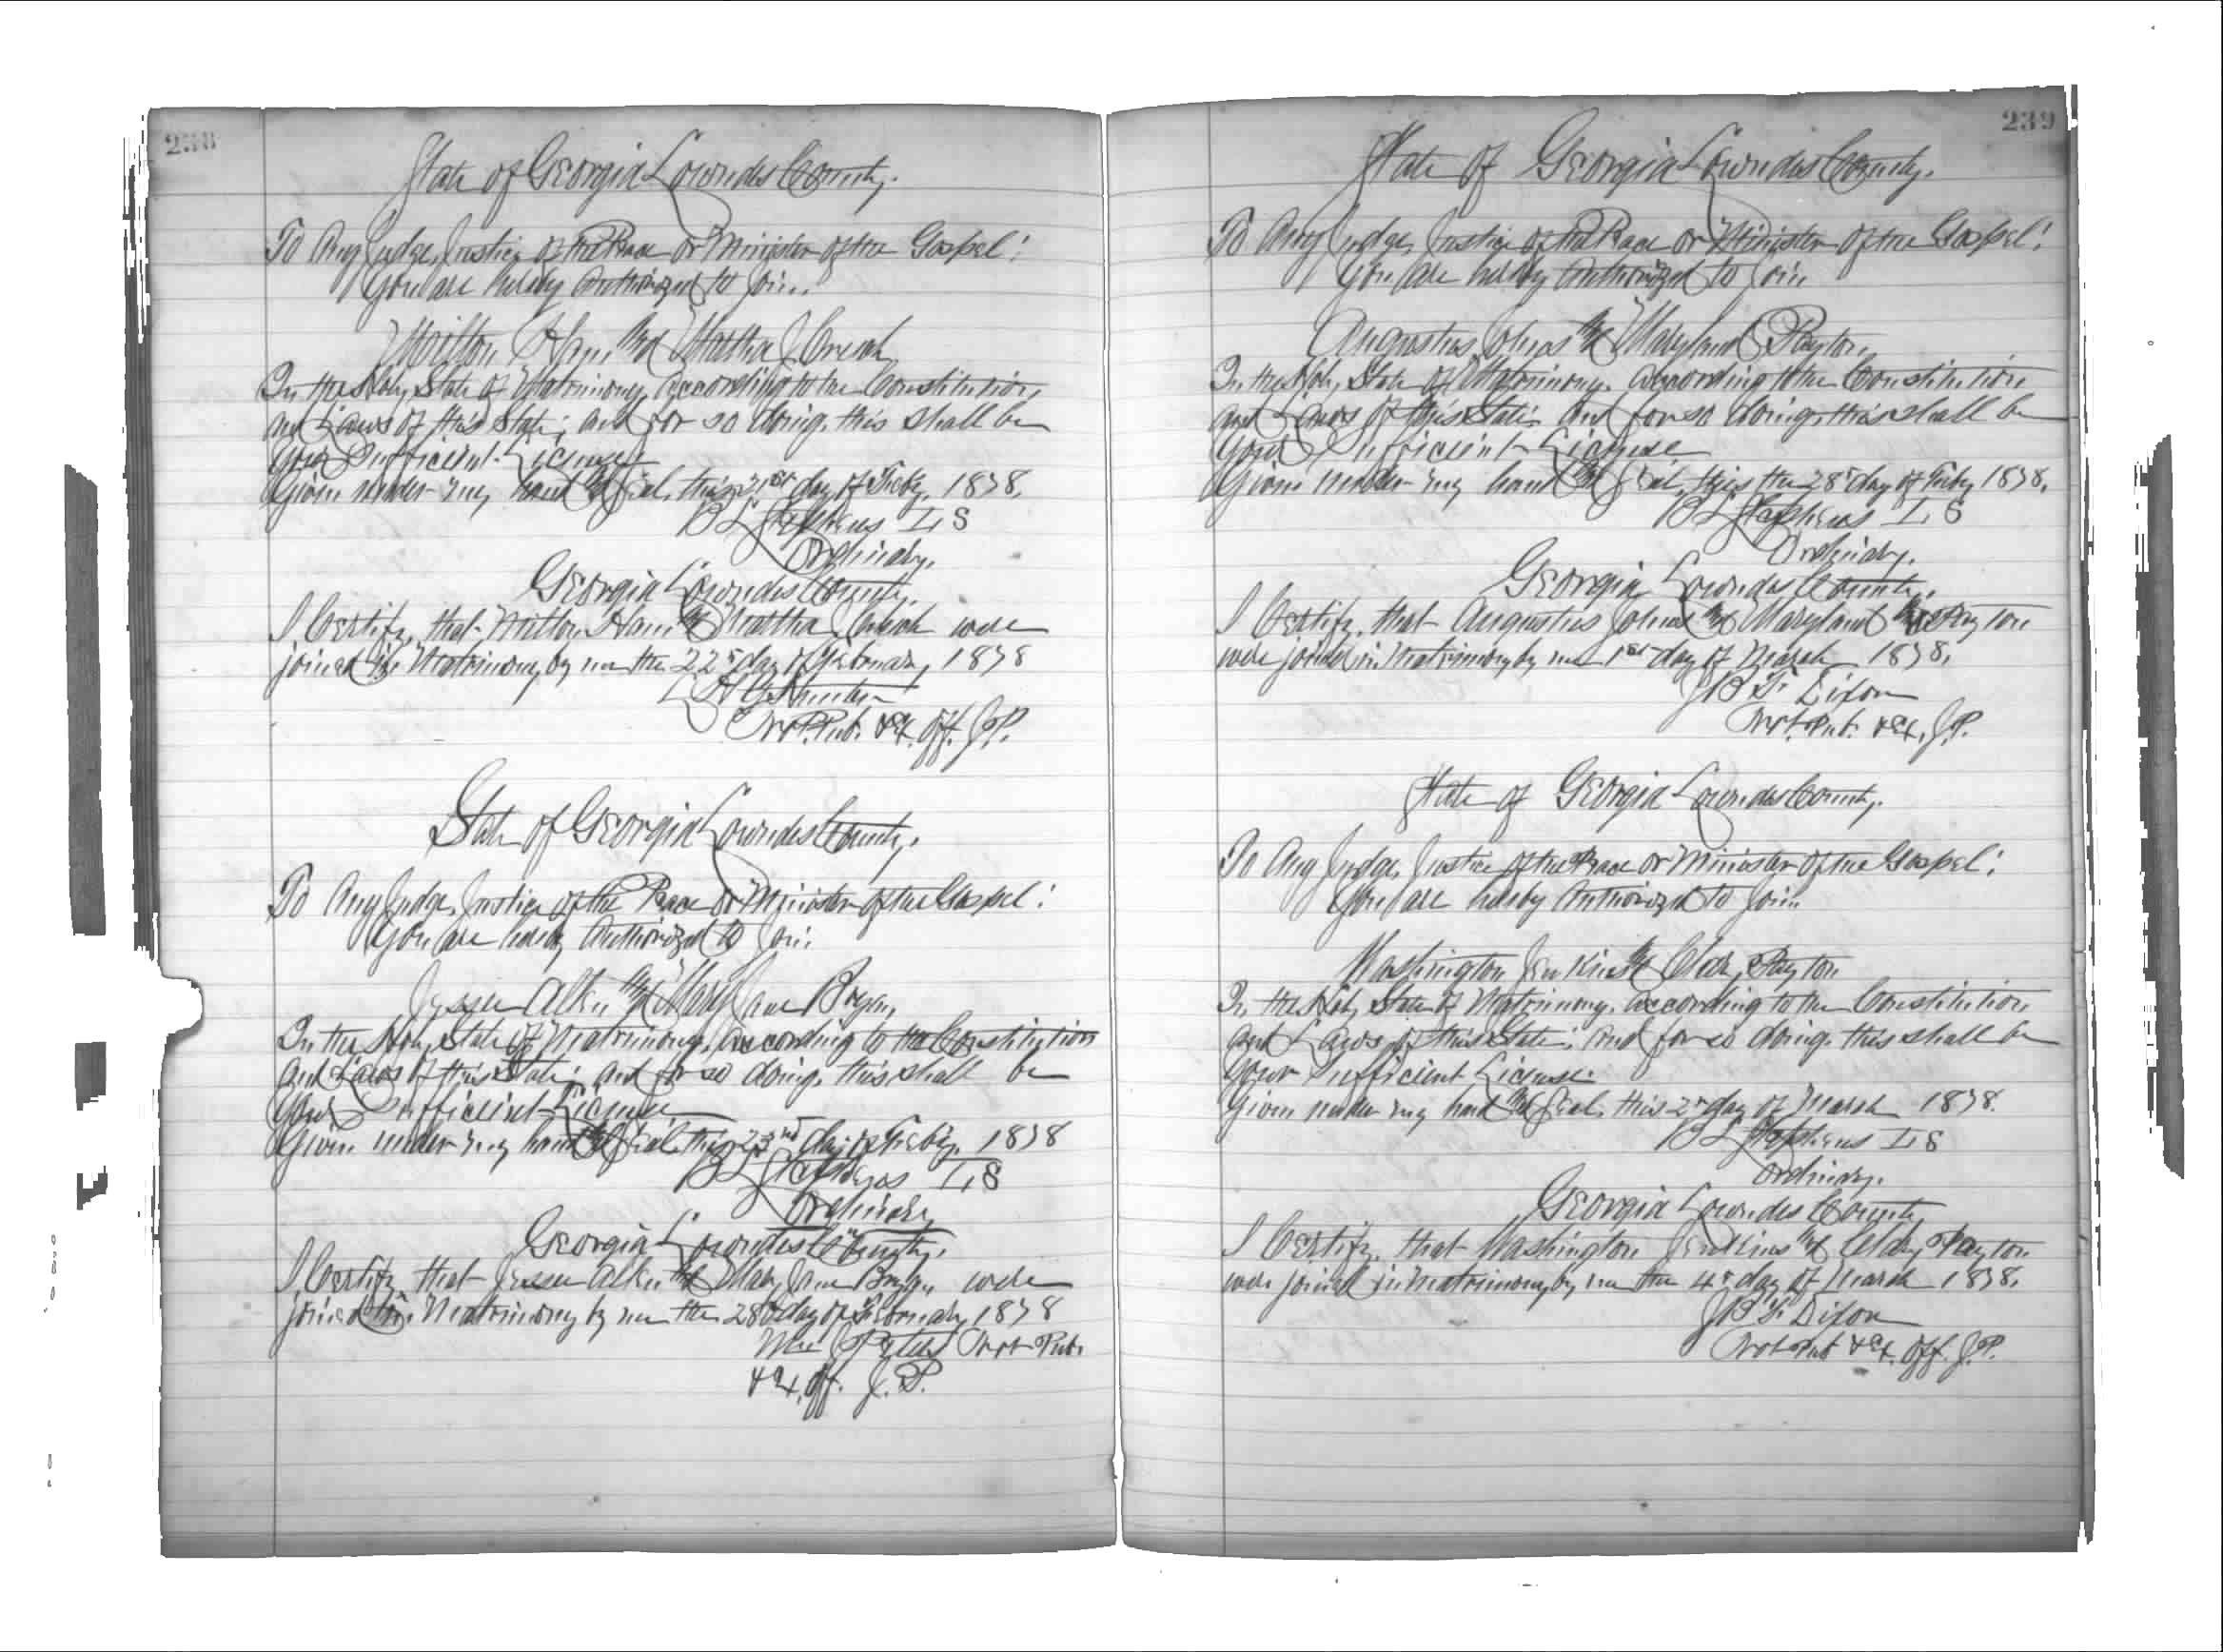 238
State of Georgia Lowndes County.
To Any Judge, Justice of the Peace or Minister of the Gospel:
You are hereby Authorized to Join
Milton and Martha J
In the Holy State of Matrimony, according to the Constitution
and Laws of this State; and for so doing, this shall be
your Sufficient License
Given under my hand and Seal, this 21st day of Feby. 1878.
B L Stephens L, S
Ordinary.
Georgia Lowndes County.
I Certify, that Milton and Martha were
joined in Matrimony by me the 22d day of February 1878
Not. Pub. & Ex. Off. J.P.
State of Georgia Lowndes County.
To Any Judge, Justice of the Peace or Minister of the Gospel:
You are hereby Authorized to Join
Jesse and Mary Jane Bryan,
In the Holy State of Matrimony, according to the Constitution
and Laws of this State; and for so doing, this shall be
your Sufficient License
Given under my hand and Seal, this 23nd day of Feby. 1878
B L Stephens L, S
Ordinary
Georgia Lowndes County.
I Certify, that Jesse and Mary Jane Bryan were
joined in Matrimony by me the 28d day of February 1878
Not Pub.
& Ex. Off. J. P.
239
State of Georgia Lowndes County.
To Any Judge, Justice of the Peace or Minister of the Gospel:
You are hereby Authorized to Join
Augustus Johns and Maryland Payton,
In the Holy State of Matrimony, according to the Constitution
and Laws of this State; and for so doing, this shall be
your Sufficient License
Given under my hand and Seal, this the 28d day of Feby 1878.
B L Stephens L, S
Ordinary.
Georgia Lowndes County.
I Certify, that Augustus Johns and Maryland Payton
were joined in Matrimony by me 1st day of March 1878.
J B F Dixon
Not. Pub. & Ex. J.P.
State of Georgia Lowndes County.
To Any Judge, Justice of the Peace or Minister of the Gospel:
You are hereby Authorized to Join
Washington Jenkins and Clary Payton
In the Holy State of Matrimony, according to the Constitution
and Laws of this State; and for so doing, this shall be
your Sufficient License
Given under my hand and Seal, this 2d day of March 1878.
B L Stephens L, S
Ordinary.
Georgia Lowndes County
I Certify, that Washington Jenkins and Clary Payton
were joined in Matrimony, by me the 4d day of March 1878.
J B F Dixon
Not Pub & Ex. Off. J.P.